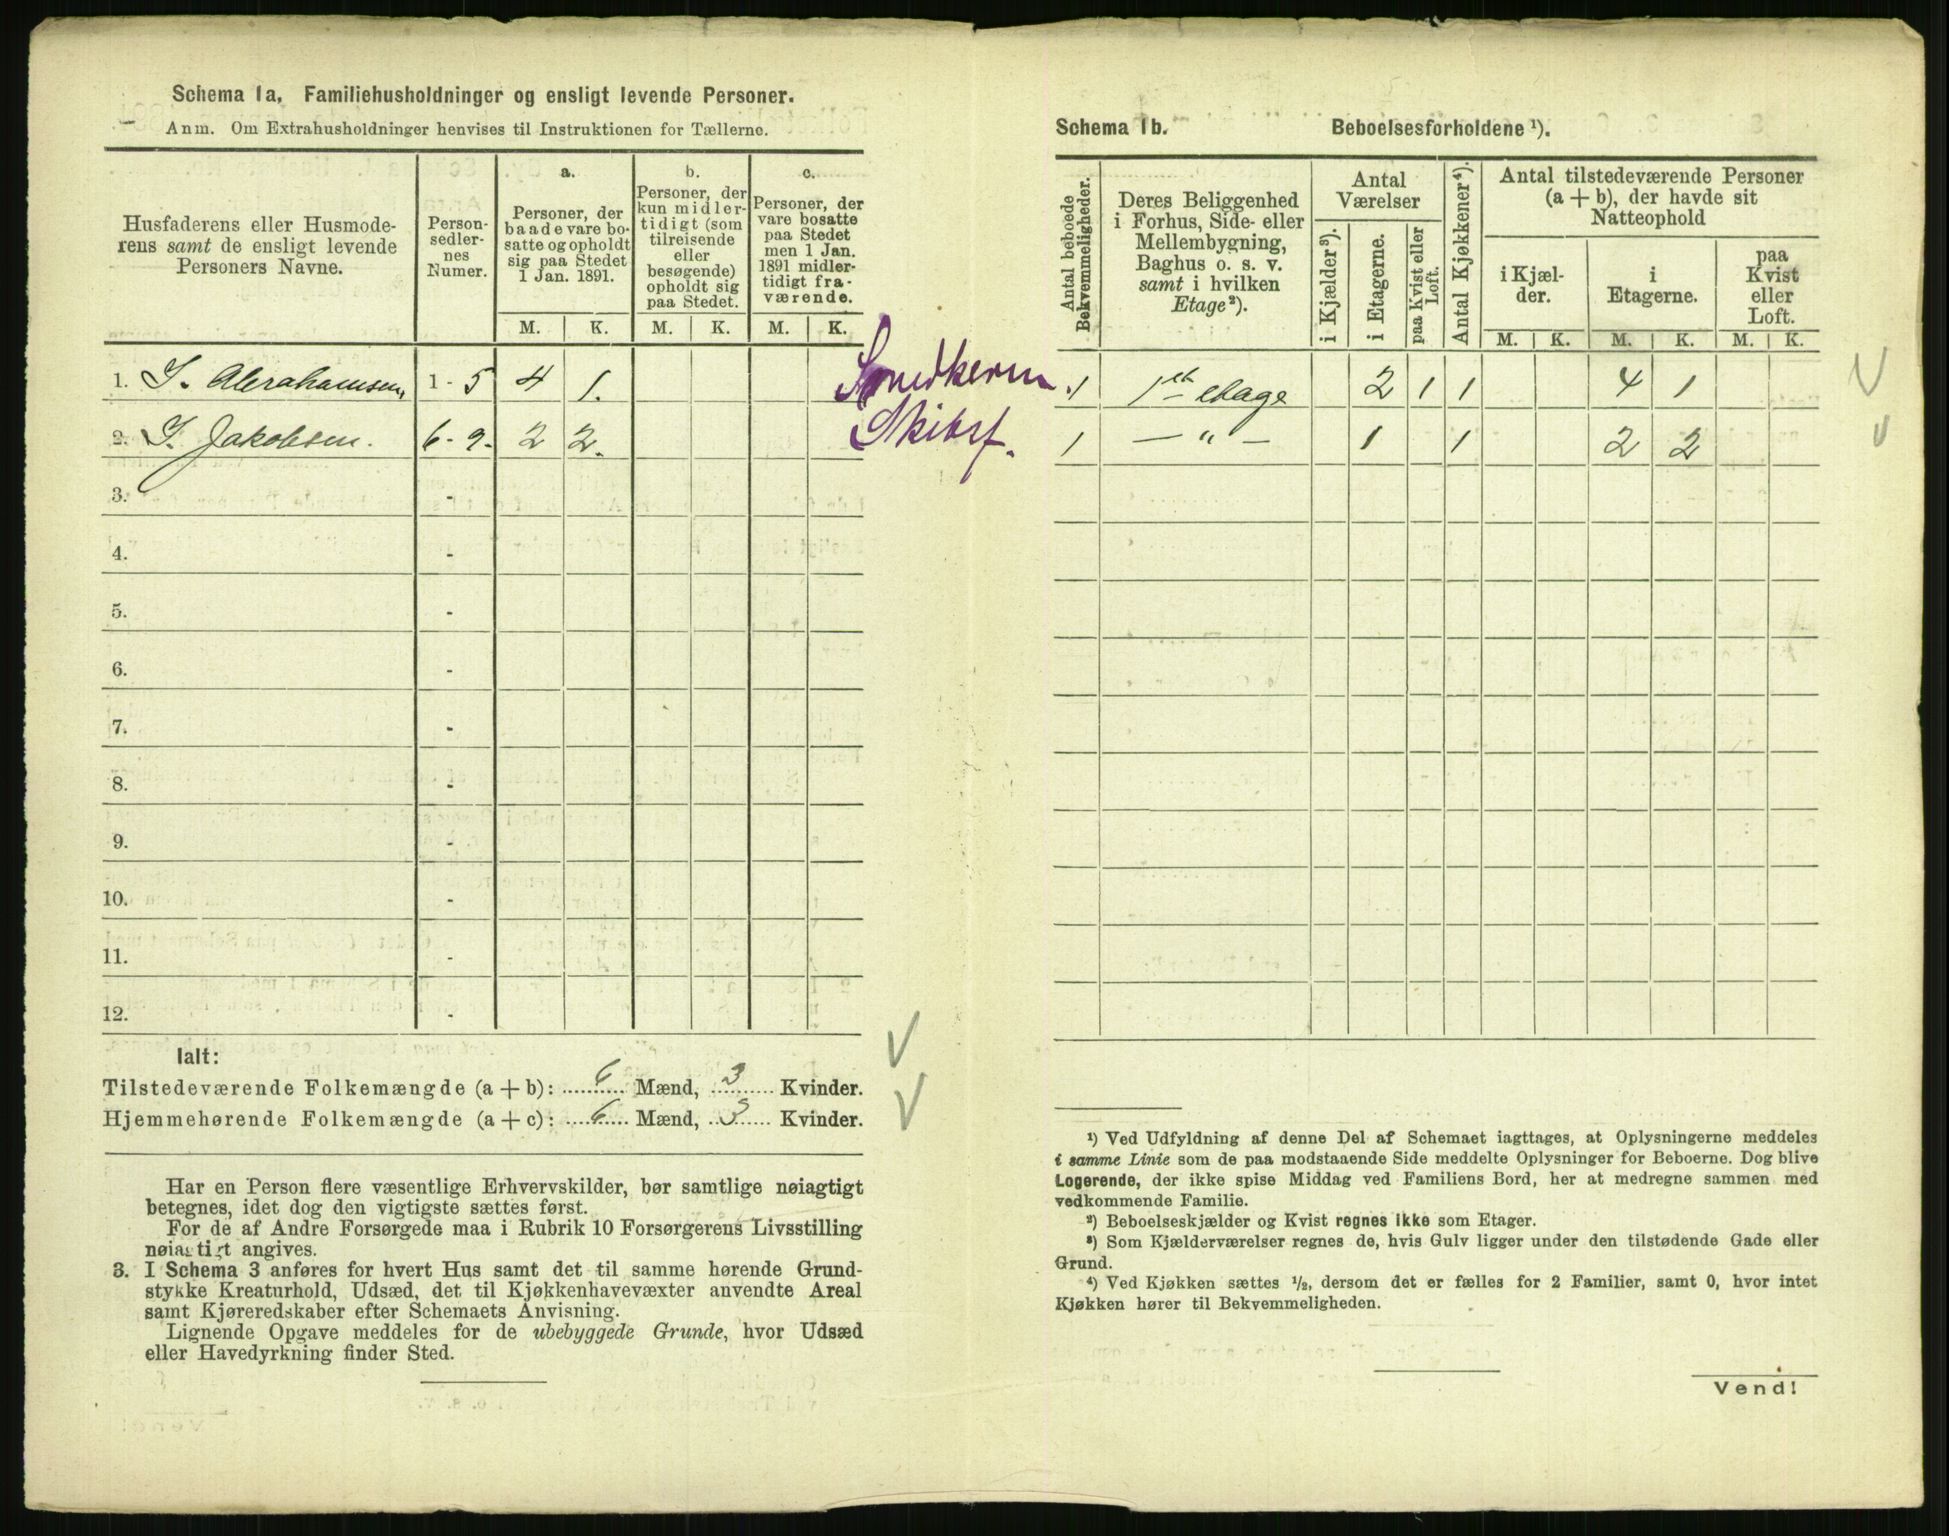 Schema 1a. Familiehusholdninger og ensligt levende Personer.
Anm. Om Extrahusholdninger henvises til Instruktionen for Tællerne.
Husfaderens eller Husmode-
rens samt de ensligt levende
Personers Navne.
Person-
sedler-
nes
Numer.
a.
Personer, der
baade vare bo-
satte og opholdt
sig paa Stedet
1 Jan. 1891.
b.
Personer, der
kun midler-
tidigt (som
tilreisende
eller
besøgende)
opholdt sig
paa Stedet.
c.
Personer, der
vare bosatte
paa Stedet
men 1 Jan.
1891 midler-
tidigt fra-
værende.
M. K. M. K. M. K.
1. I. Abrahamsen, 1 - 5 4 1.
2. I. Jakobsen. 6 - 9. 2 2.
3. -
4. -
5. -
6. -
7. -
8. -
9. -
10. -
11. -
12. -
Ialt:
Tilstedeværende Folkemængde (a + b): 6 Mænd, 3 Kvinder.
Hjemmehørende Folkemængde (a + c): 6 Mænd, 3 Kvinder.
Har en Person flere væsentlige Erhvervskilder, bør samtlige nøiagtigt
betegnes, idet dog den vigtigste sættes først.
For de af Andre Forsørgede maa i Rubrik 10 Forsørgerens Livsstilling
nøiagtigt angives.
3. I Schema 3 anføres for hvert Hus samt det til samme hørende Grund-
stykke Kreaturhold, Udsæd, det til Kjøkkenhavevæxter anvendte Areal
samt Kjøreredskaber efter Schemaets Anvisning.
Lignende Opgave meddeles for de ubebyggede Grunde, hvor Udsæd
eller Havedyrkning finder Sted.
Snedkerm.
Skibsf.
Schema 1b. Beboelsesforholdene ¹).
Antal beboede
Bekvemmeligheder.
Deres Beliggenhed
i Forhus, Side- eller
Mellembygning,
Baghus o. s. v.
samt i hvilken
Etage²).
Antal
Værelser
i Kjælder³).
i Etagerne.
paa Kvist eller
Loft.
Antal Kjøkkener⁴).
Antal tilstedeværende Personer
(a + b), der havde sit
Natteophold
i Kjæl-
der.
i
Etagerne.
paa
Kvist
eller
Loft.
M. K. M. K. M. K.
1 1ste etage 2 1 1 4 1
1 — " — 1 1 2 2
¹) Ved Udfyldning af denne Del af Schemaet iagttages, at Oplysningerne meddeles
i samme Linie som de paa modstaaende Side meddelte Oplysninger for Beboerne. Dog blive
Logerende, der ikke spise Middag ved Familiens Bord, her at medregne sammen med
vedkommende Familie.
²) Beboelseskjælder og Kvist regnes ikke som Etager.
³) Som Kjælderværelser regnes de, hvis Gulv ligger under den tilstødende Gade eller
Grund.
⁴) Ved Kjøkken sættes ½, dersom det er fælles for 2 Familier, samt 0, hvor intet
Kjøkken hører til Bekvemmeligheden.
Vend!